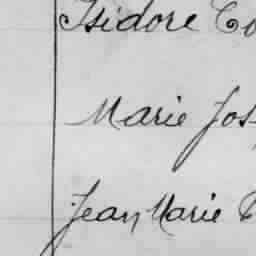 Isidore Co
Marie Jos
Jean Marie